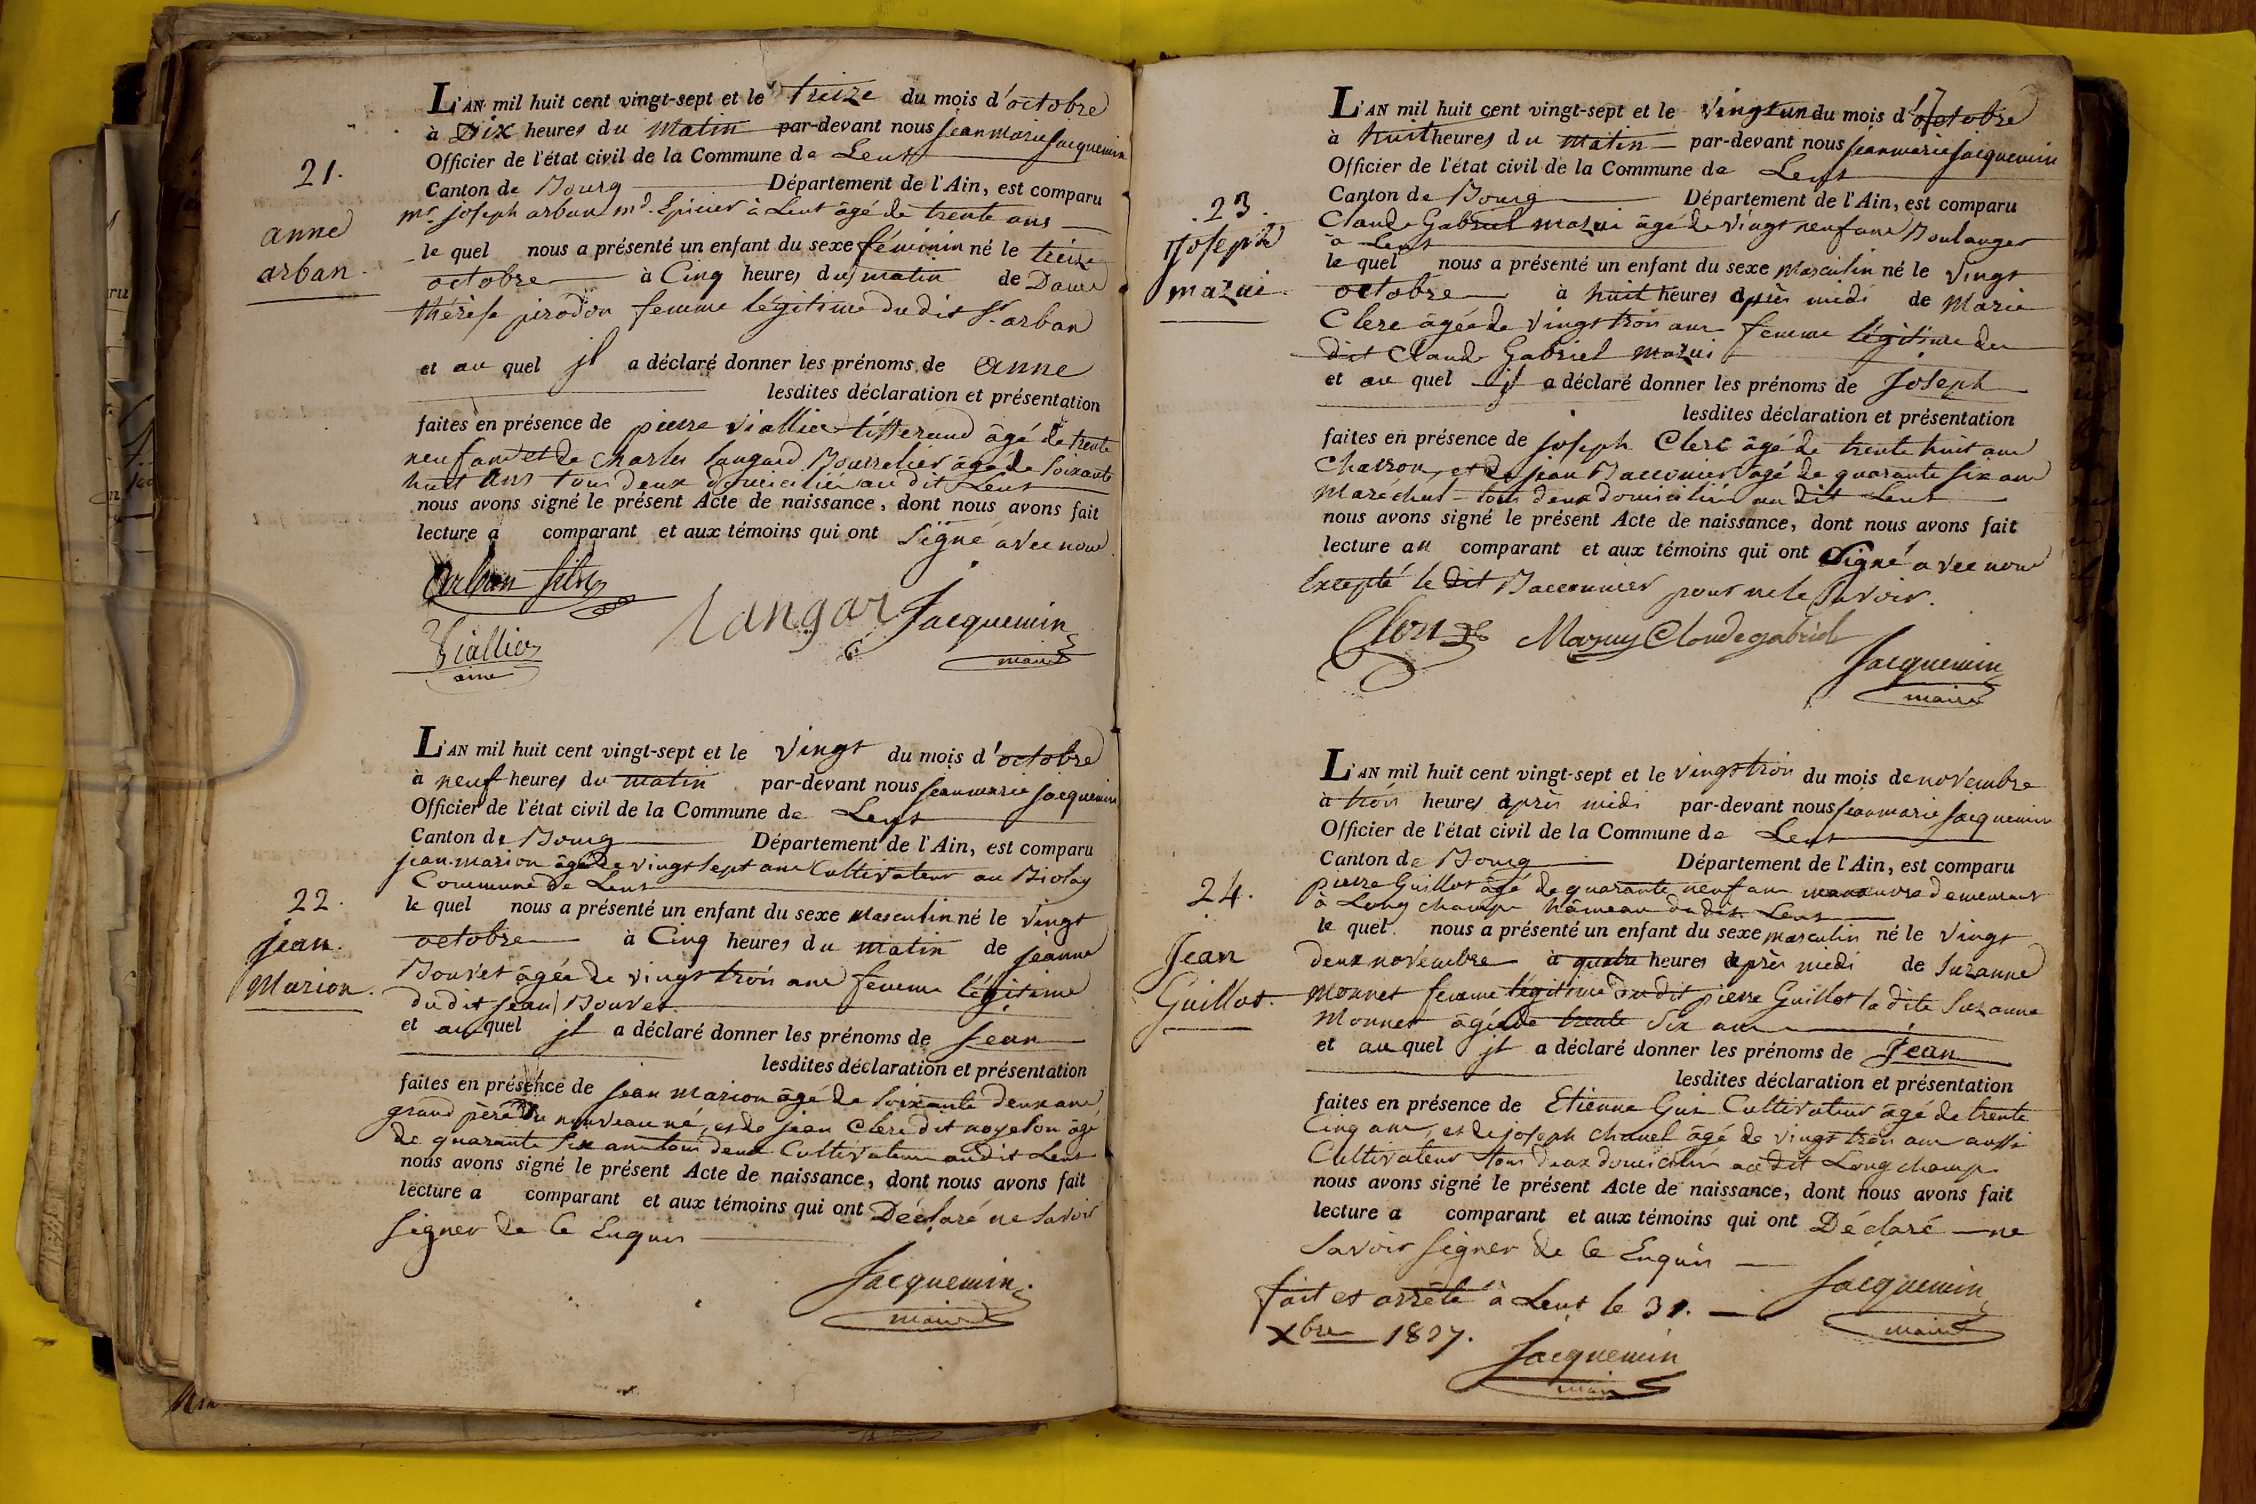 21.
anne
arban.
L'AN mil huit cent vingt-sept et le treize du mois d'octobre
à Dix heures du matin par-devant nous jean marie jacquemin
Officier de l'état civil de la Commune de Lent
Canton de Bourg Département de l'Ain, est comparu
mr joseph arban md. Epicier à Lent âgé de trente ans
le quel nous a présenté un enfant du sexe féminin né le treize
octobre à Cinq heures du matin de Dame
thérèse pirodon femme légitime du dit Sr. arban
et au quel jl a déclaré donner les prénoms de anne
lesdites déclaration et présentation
faites en présence de pierre Viallier tisserand âgé de trente
neuf ans et de Charles Langard Bourrelier âgé de Soixante
huit ans tous deux domiciliés au dit Lent
nous avons signé le présent Acte de naissance, dont nous avons fait
lecture a comparant et aux témoins qui ont Signé avec nous
arban fils
Langar Jacquemin
Viallier maire
aine
22.
jean.
Marion.
L'AN mil huit cent vingt-sept et le Vingt du mois d'octobre
à neuf heures du matin par-devant nous jean marie jacquemin
Officier de l'état civil de la Commune de Lent
Canton de Bourg Département de l'Ain, est comparu
jean marion âgé de vingt sept ans Cultivateur au Biolay
Commune de Lent
le quel nous a présenté un enfant du sexe Masculin né le Vingt
octobre à Cinq heures du matin de jeanne
Bouvet âgée de vingt trois ans femme légitime
du dit jean Bouvet
et au quel jl a déclaré donner les prénoms de jean
lesdites déclaration et présentation
faites en présence de jean Marion âgé de Soixante deux ans,
grand père du nouveau né, et de jean Clerc dit noyelon âgé
de quarante Six ans tous deux Cultivateurs au dit Lent
nous avons signé le présent Acte de naissance, dont nous avons fait
lecture a comparant et aux témoins qui ont Déclaré ne Savoir
Signer de Ce Enquis
Jacquemin.
maire
.23.
Joseph
mazui.
L'AN mil huit cent vingt-sept et le Vingt un du mois d'octobre
à huit heures du matin par-devant nous jean marie jacquemin
Officier de l'état civil de la Commune de Lent
Canton de Bourg Département de l'Ain, est comparu
Claude Gabriel mazui âgé de vingt neuf ans Boulanger
à Lent
le quel nous a présenté un enfant du sexe Masculin né le Vingt
octobre à huit heures après midi de Marie
Clerc âgée de Vingt trois ans femme légitime du
dit Claude Gabriel mazui
et au quel jl a déclaré donner les prénoms de Joseph
lesdites déclaration et présentation
faites en présence de joseph Clerc âgé de trente huit ans
Charron, et de jean Bacconnier âgé de quarante six ans
Maréchal - tous deux domiciliés au dit Lent
nous avons signé le présent Acte de naissance, dont nous avons fait
lecture au comparant et aux témoins qui ont Signé avec nous
Excepté le dit Bacconnier pour ne le Savoir.
Clerc Mazuy Claude gabriel
Jacquemin
maire
24.
Jean
Guillot.
L'AN mil huit cent vingt-sept et le vingt trois du mois de novembre
à trois heures après midi par-devant nous jean marie jacquemin
Officier de l'état civil de la Commune de Lent
Canton de Bourg Département de l'Ain, est comparu
pierre Guillot âgé de quarante neuf ans manouvre demeurant
à Long champ hâmeau du dit Lent
le quel nous a présenté un enfant du sexe masculin né le Vingt
deux novembre à quatre heures après midi de Suzanne
Monnet femme légitime du dit pierre Guillot la dite Suzanne
Monnet âgée de trente Six ans
et au quel jl a déclaré donner les prénoms de Jean
lesdites déclaration et présentation
faites en présence de Etienne Gui Cultivateur âgé de trente
Cinq ans, et de joseph Chanel âgé de vingt trois ans aussi
Cultivateur tous deux domiciliés au dit Long champ
nous avons signé le présent Acte de naissance, dont nous avons fait
lecture a comparant et aux témoins qui ont Déclaré ne
Savoir Signer de Ce Enquis
Jacquemin
maire
fait et arrêté à Lent le 31.
xbre 1827.
Jacquemin
maire